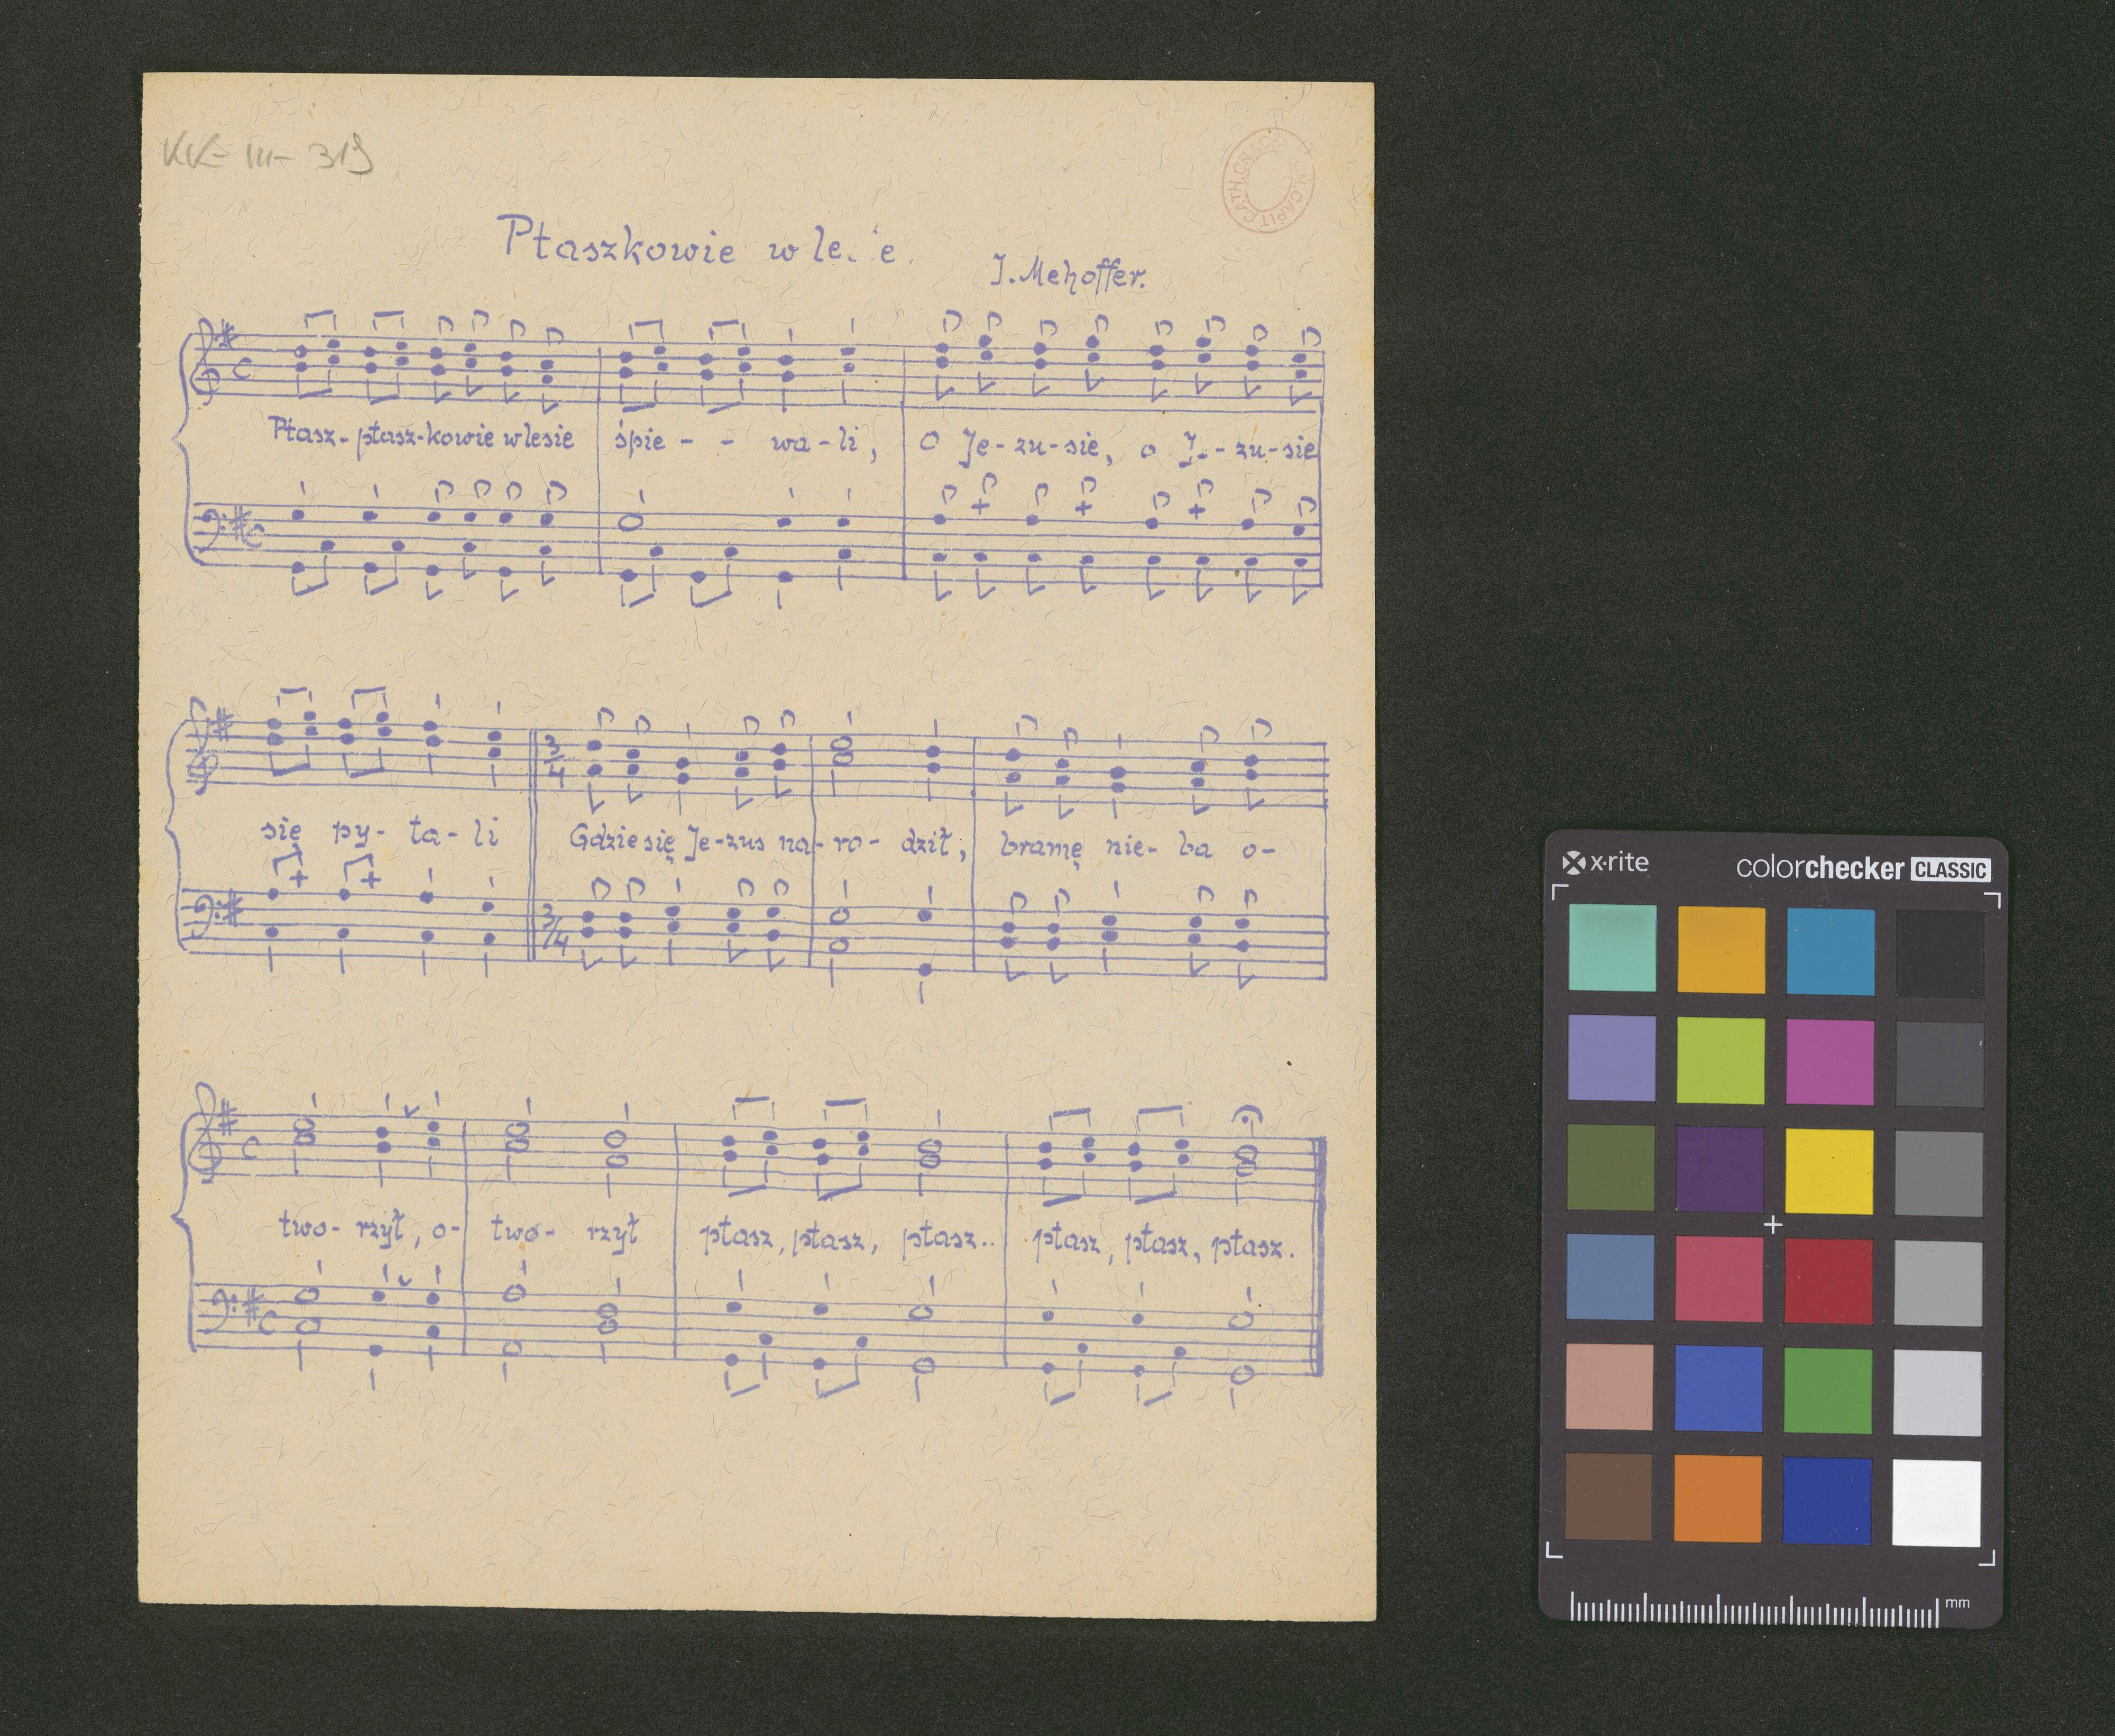 KK-III-319
Ptaszkowie w le. e.
J. Mehoffer.
Ptasz-ptasz-kowie w lesie śpie - - wa-li, O Je-zu-sie, o J.-zu-sie
się py-ta-li Gdzie się Je-zus na-ro-dził, bramę nie-ba o-
two-rzył, o- two-rzył ptasz, ptasz, ptasz.. ptasz, ptasz, ptasz.
x-rite colorchecker CLASSIC
mm